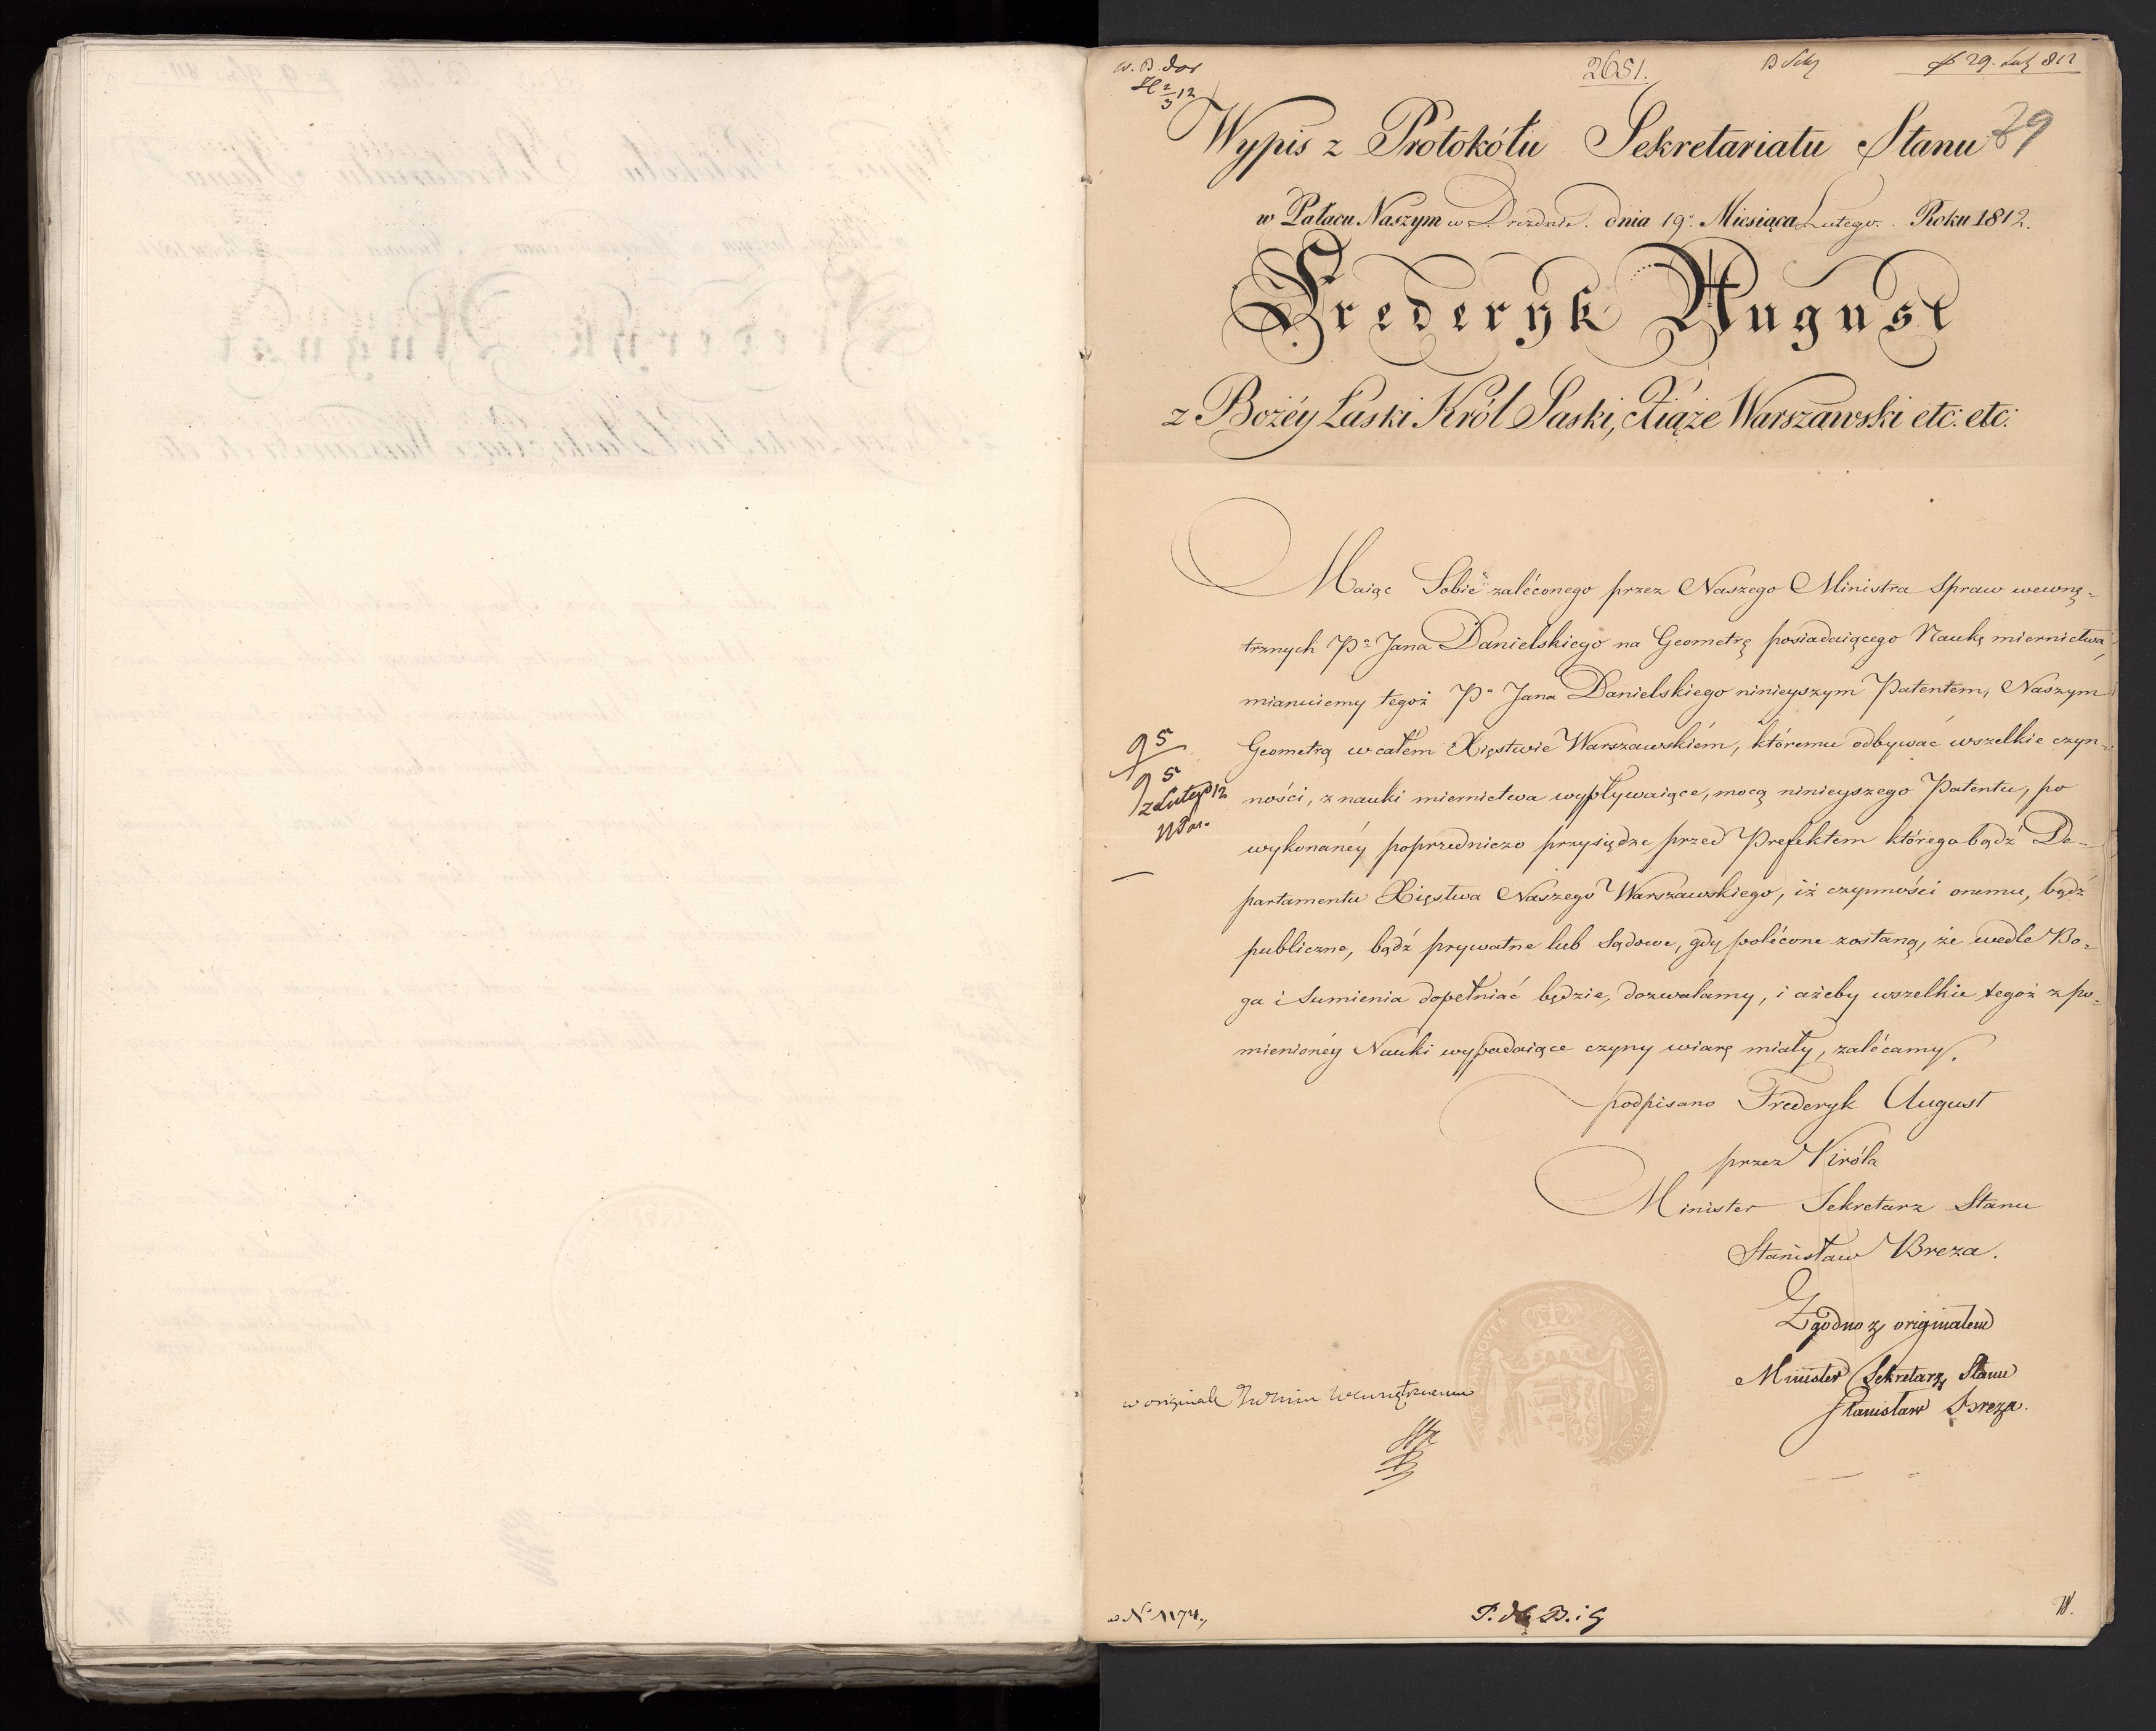 2651.
29. Lut 812
89
Wypis z Protokółu Sekretariatu Stanu
w Pałacu Naszym w Dreznie. dnia 19. Miesiąca Lutego. Roku 1812.
Frederyk August
z Bożéy Łaski Król Saski, Xiąże Warszawski etc: etc:
Maiąc Sobie zaléconego przez Naszego Ministra Spraw wewnę-
trznych Pa Jana Danielskiego na Geometrę posiadaiącego Naukę miernictwa,
mianuiemy tegoż Pa Jana Danielskiego ninieyszym Patentem, Naszym
Geometrą w całém Xięstwie Warszawskiém, któremu odbywać wszelkie czyn-
ności, z nauki miernictwa wypływaiące, mocą ninieyszego Patentu, po
wykonanéy poprzedniczo przysiędze przed Prefektem któregobądź De-
partamentu Xięstwa Naszego Warszawskiego, iż czynności onemu, bądź
publiczne, bądź prywatne lub Sądowe, gdy polécone zostaną, że wedle Bo-
ga i Sumienia dopełniać będzie, dozwalamy, i ażeby wszelkie tegoż z po-
mienionéy Nauki wypadaiące czyny wiarę miały, zalécamy.
podpisano Frederyk August
przez Króla
Minister Sekretarz Stanu
Stanisław Breza.
Zgodno z originałem
Minister Sekretarz Stanu
Stanisław Breza.
95
95
z Lutego 12
FRIDERICVS AVGVSTVS
VARSOVIÆ
No 1174.